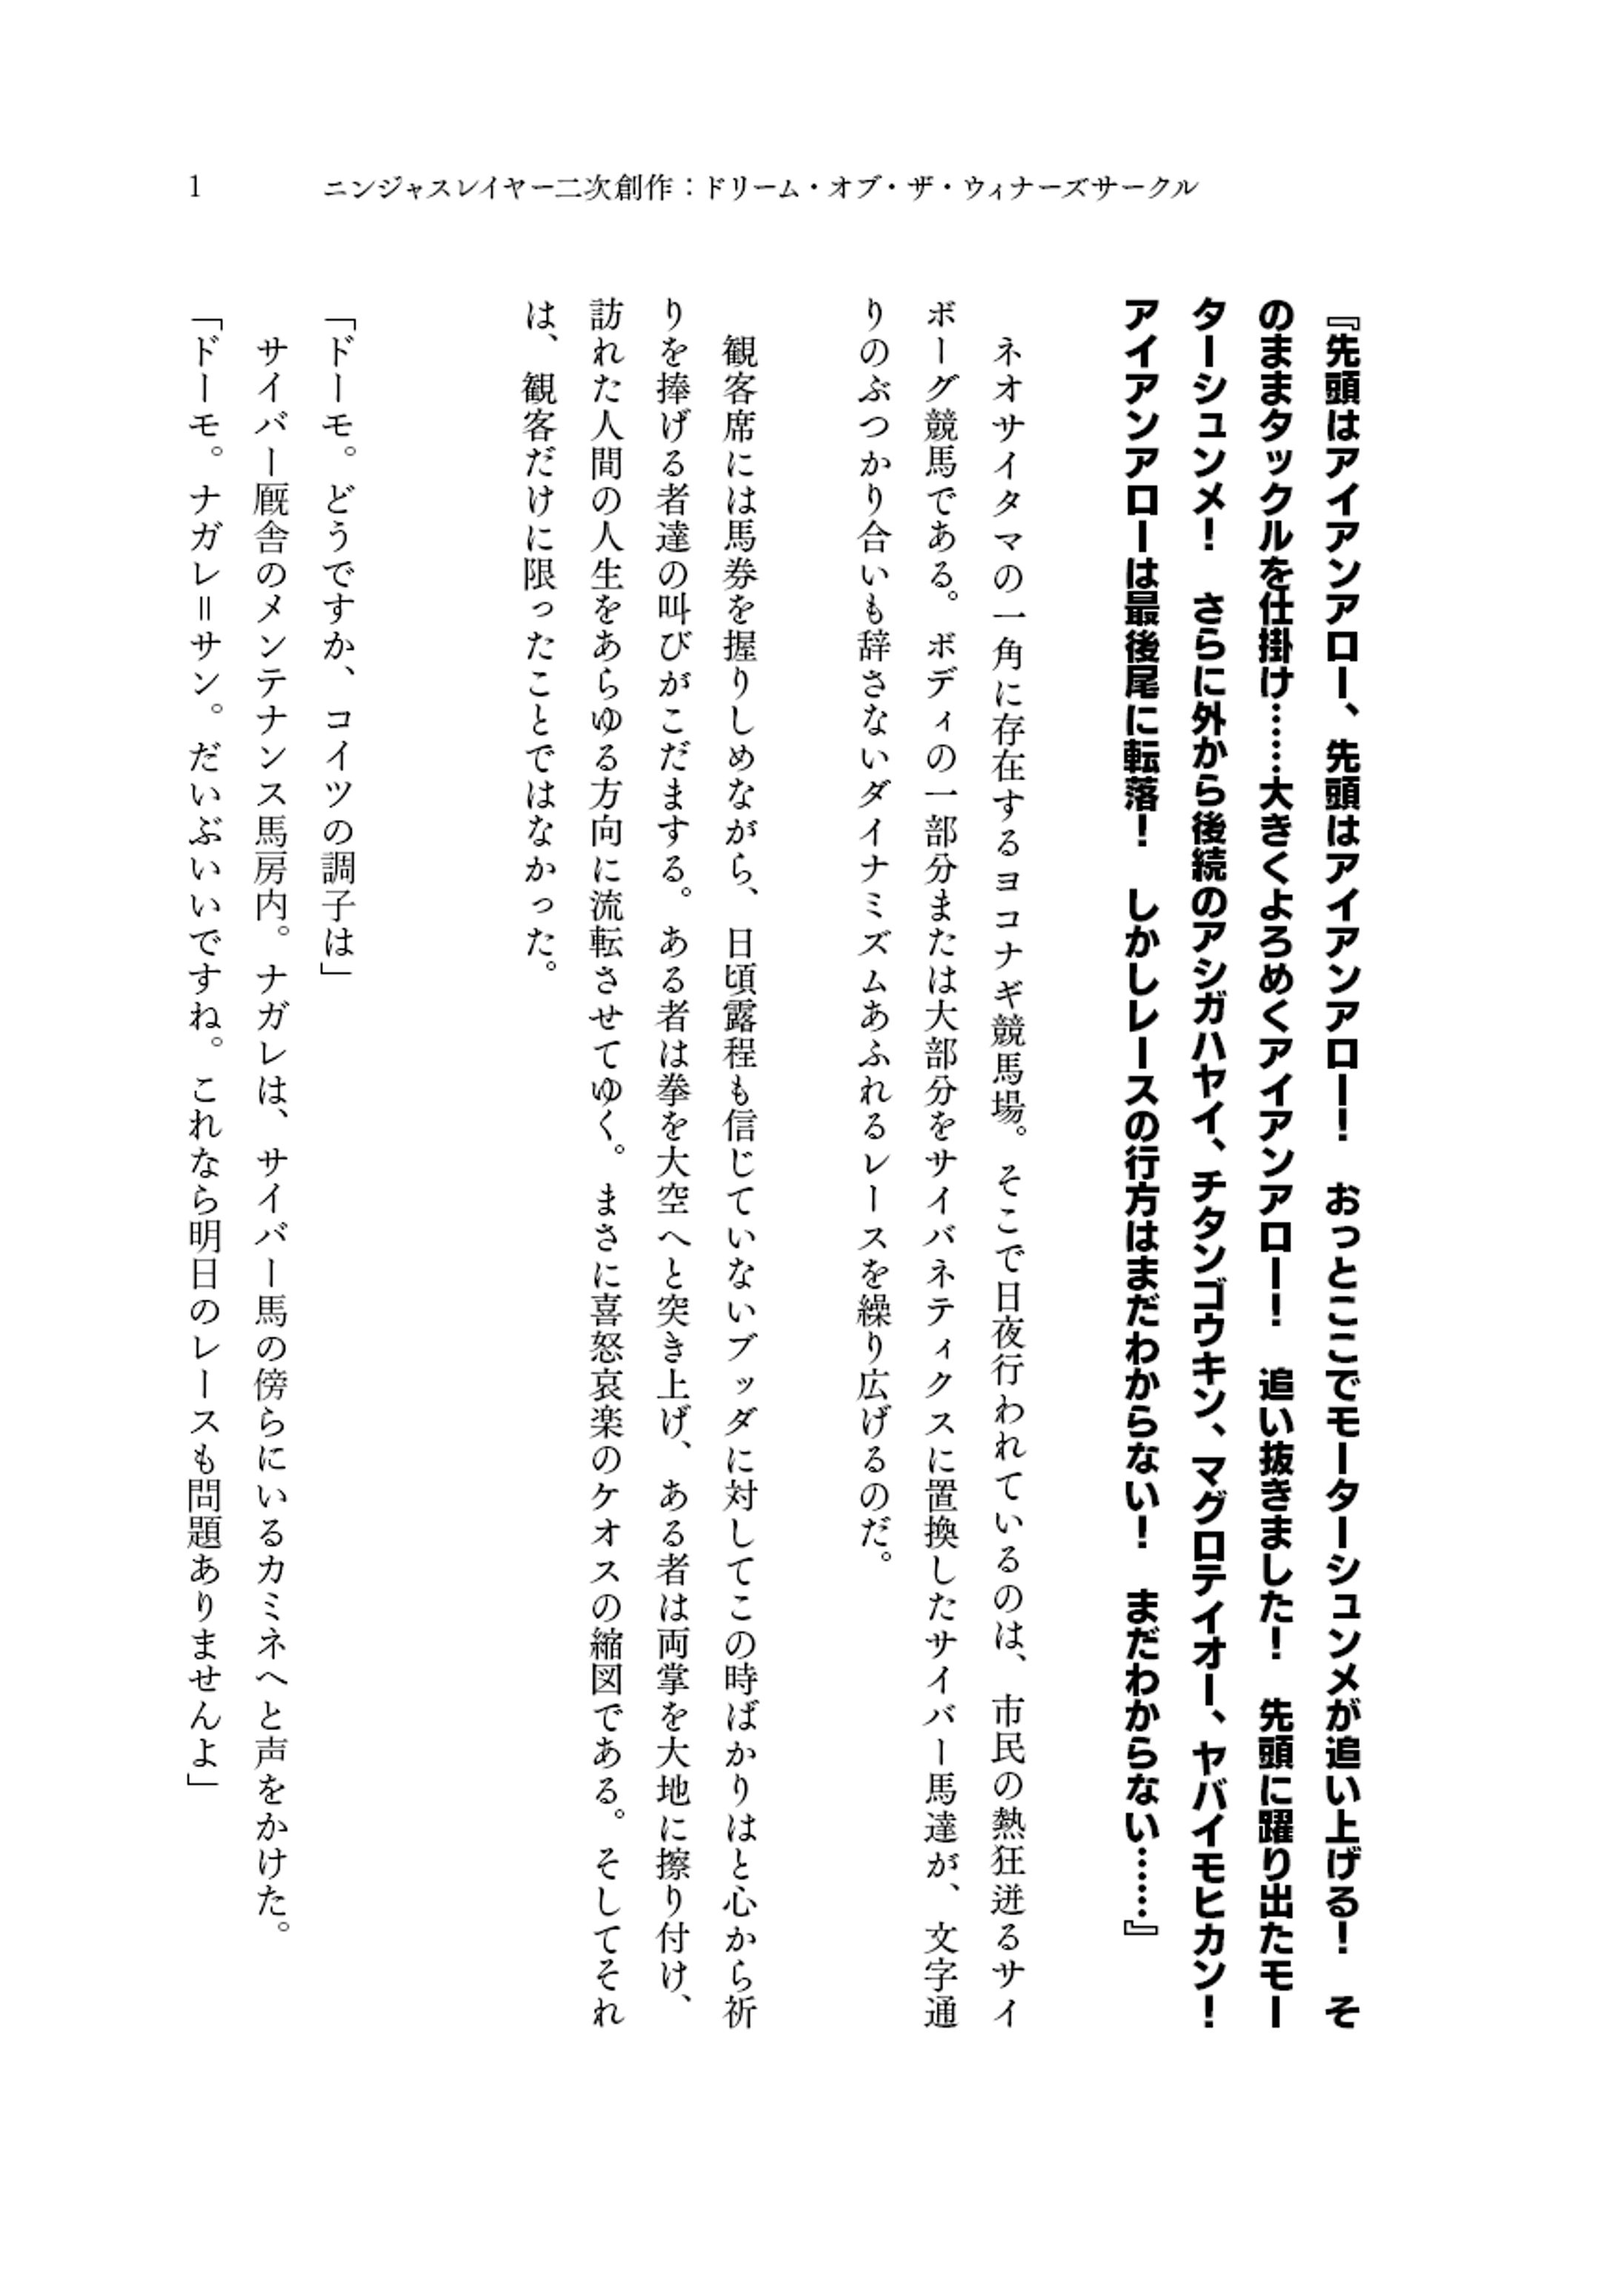 1
ニンジャスレイヤー二次創作：ドリーム・オブ・ザ・ウィナーズサークル
『先頭はアイアンアロー、先頭はアイアンアロー！　おっとここでモーターシュンメが追い上げる！　そ
のままタックルを仕掛け……大きくよろめくアイアンアロー！　追い抜きました！　先頭に躍り出たモー
ターシュンメ！　さらに外から後続のアシガハヤイ、チタンゴウキン、マグロテイオー、ヤバイモヒカン！
アイアンアローは最後尾に転落！　しかしレースの行方はまだわからない！　まだわからない……』
ネオサイタマの一角に存在するヨコナギ競馬場。そこで日夜行われているのは、市民の熱狂迸るサイ
ボーグ競馬である。ボディの一部分または大部分をサイバネティクスに置換したサイバー馬達が、文字通
りのぶつかり合いも辞さないダイナミズムあふれるレースを繰り広げるのだ。
観客席には馬券を握りしめながら、日頃露程も信じていないブッダに対してこの時ばかりはと心から祈
りを捧げる者達の叫びがこだまする。ある者は拳を大空へと突き上げ、ある者は両掌を大地に擦り付け、
訪れた人間の人生をあらゆる方向に流転させてゆく。まさに喜怒哀楽のケオスの縮図である。そしてそれ
は、観客だけに限ったことではなかった。
「ドーモ。どうですか、コイツの調子は」
サイバー厩舎のメンテナンス馬房内。ナガレは、サイバー馬の傍らにいるカミネへと声をかけた。
「ドーモ。ナガレ＝サン。だいぶいいですね。これなら明日のレースも問題ありませんよ」